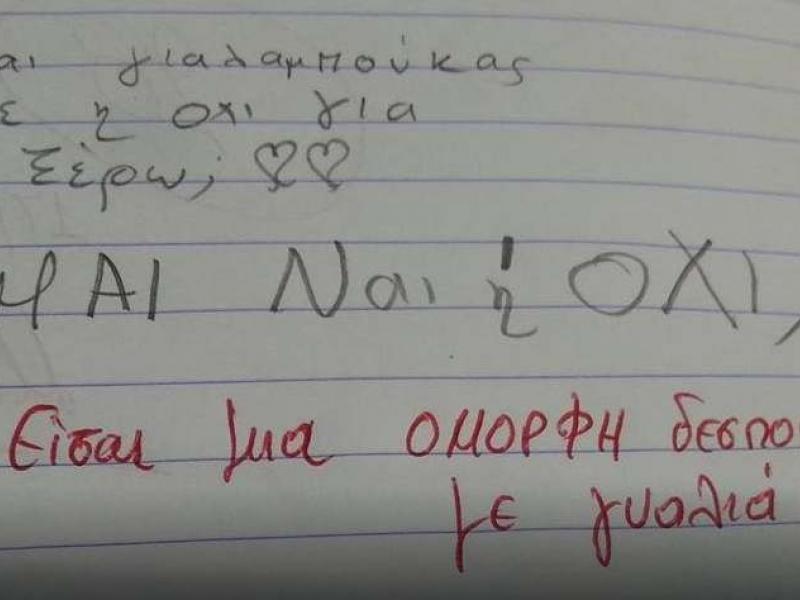 αι γιαλαμπούκας
ε η οχι για
ξέρω; ♡♡
ΜΑΙ Ναι ή ΟΧΙ,
Είσαι μια ΟΜΟΡΦΗ δεσπο
με γυαλιά